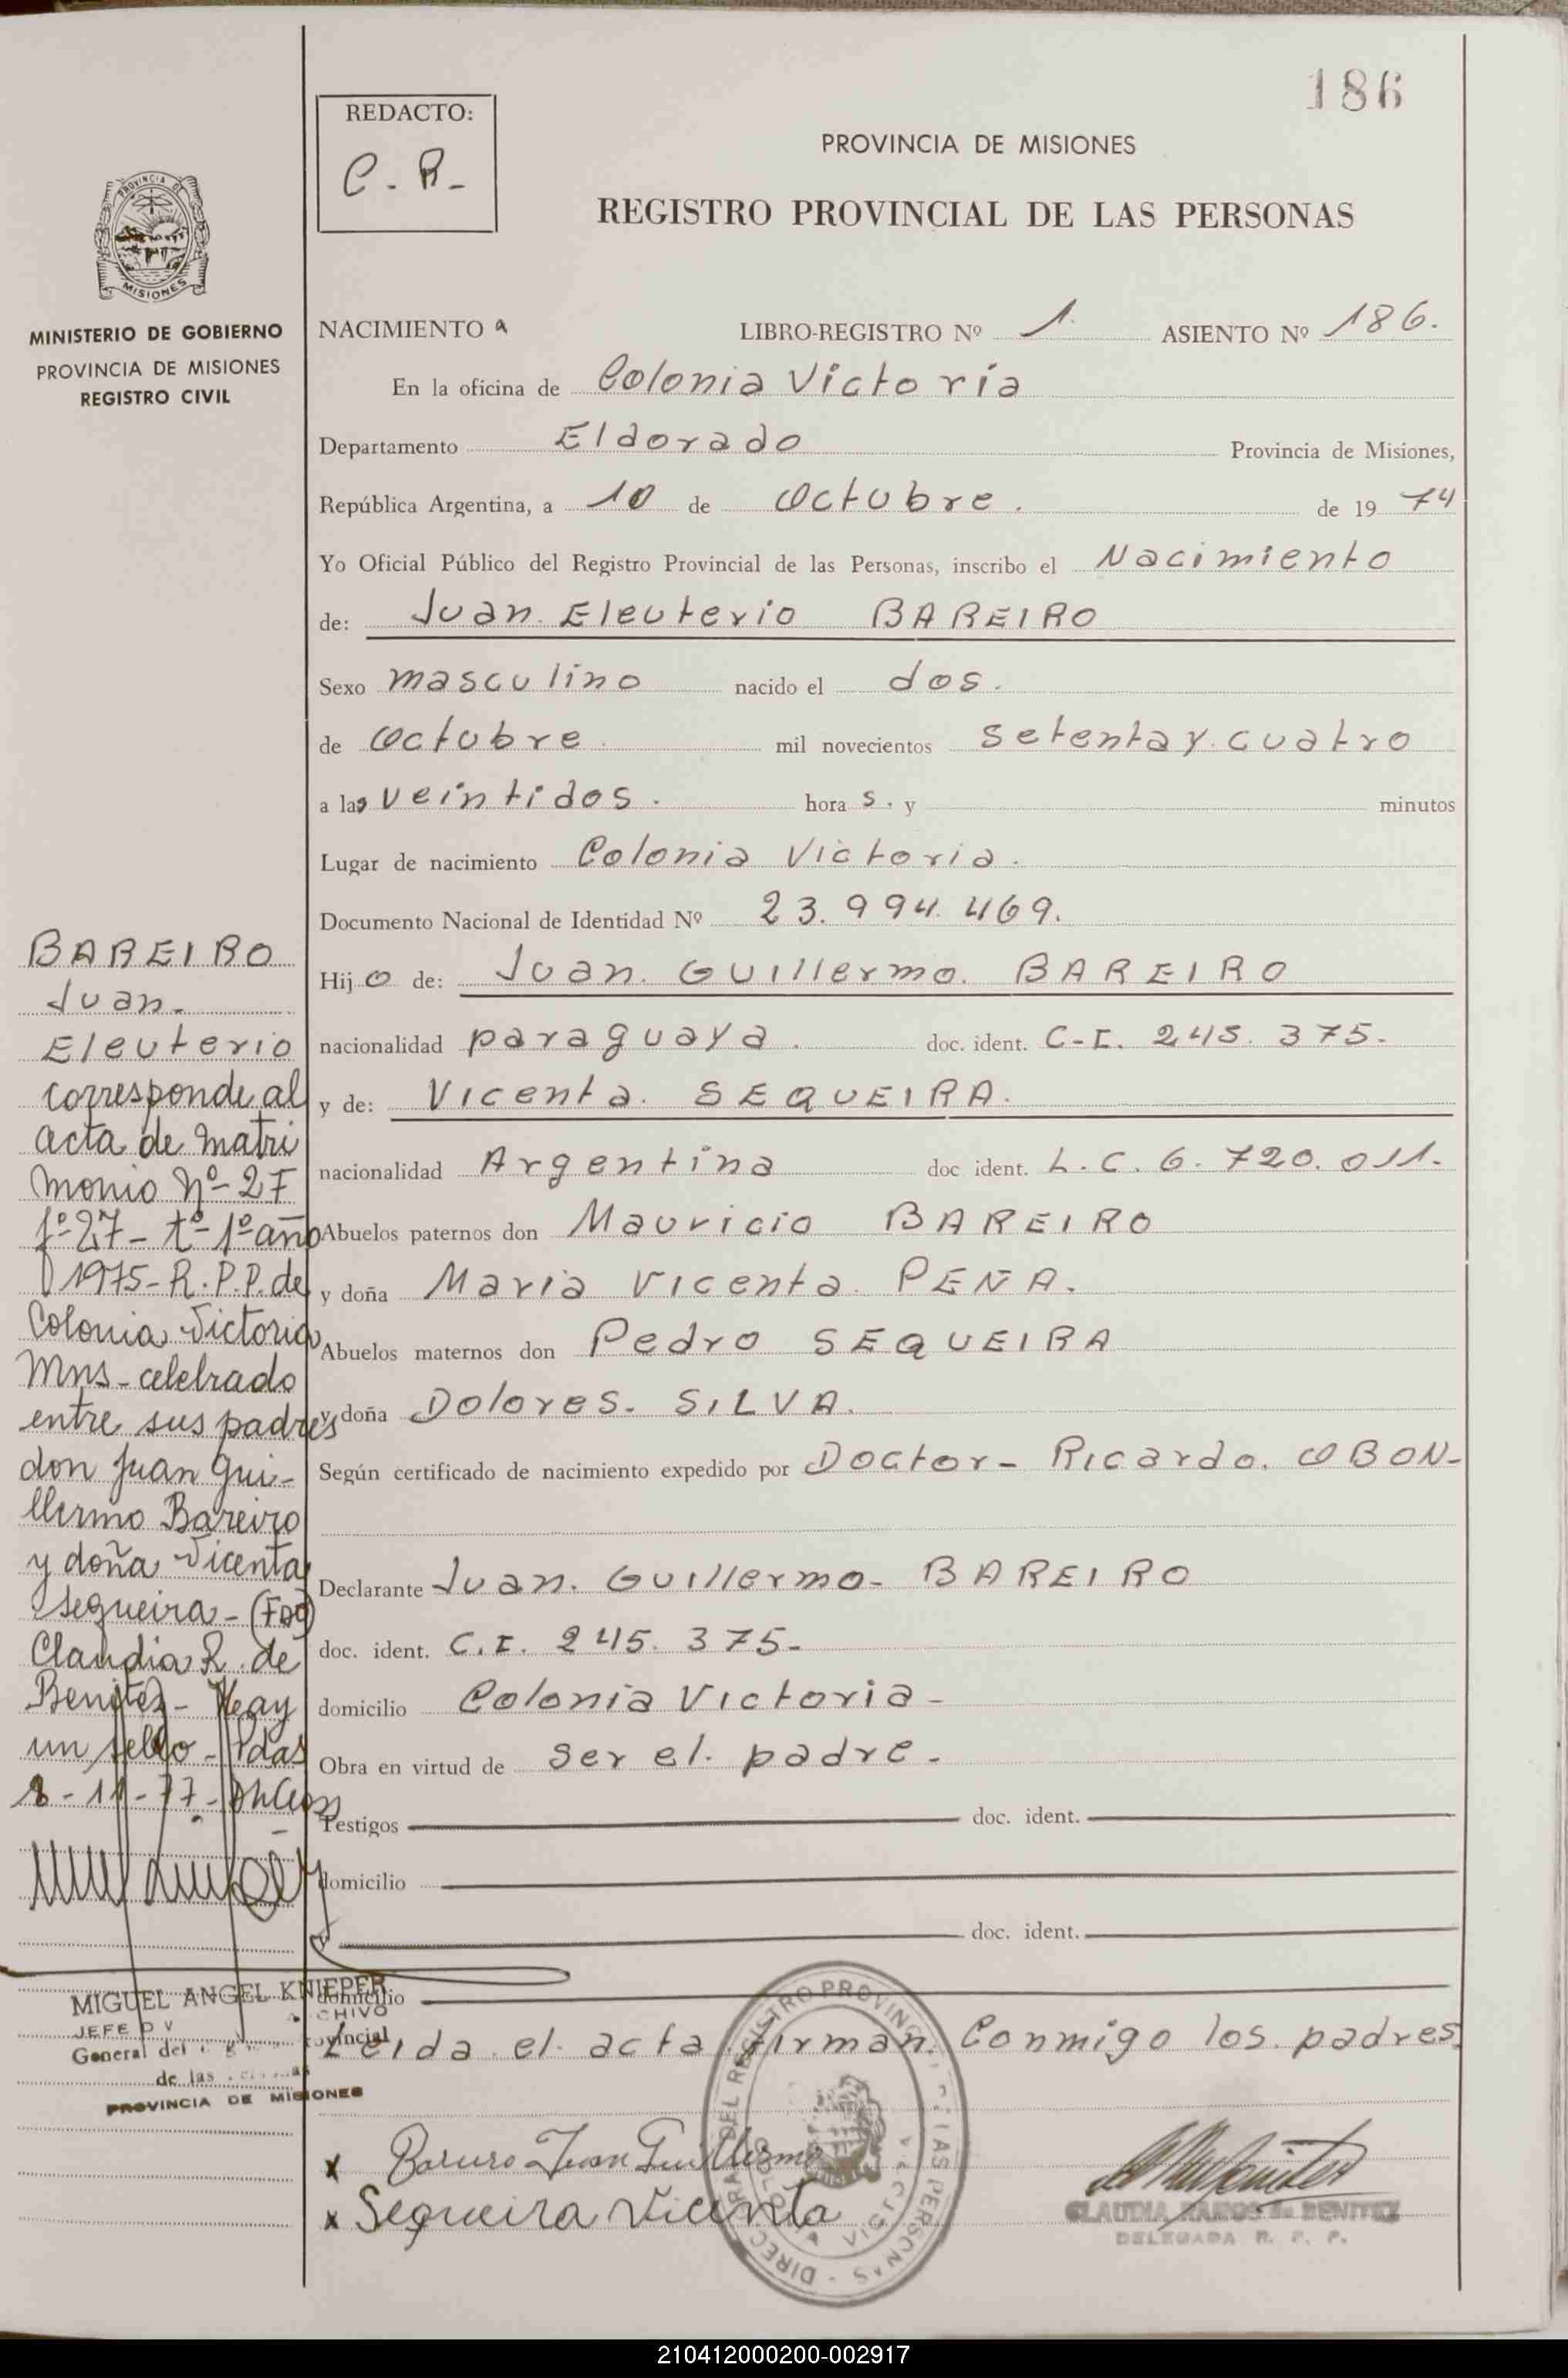 186
REDACTO:
C. R.-
PROVINCIA DE MISIONES
REGISTRO PROVINCIAL DE LAS PERSONAS
PROVINCIA DE
MISIONES
MINISTERIO DE GOBIERNO
PROVINCIA DE MISIONES
REGISTRO CIVIL
NACIMIENTO LIBRO-REGISTRO Nº 1. ASIENTO Nº 186.
En la oficina de Colonia Victoria
Departamento Eldorado Provincia de Misiones,
República Argentina, a 10 de Octubre. de 19 74
Yo Oficial Público del Registro Provincial de las Personas, inscribo el Nacimiento
de: Juan. Eleuterio BAREIRO
Sexo masculino nacido el dos.
de Octubre. mil novecientos setenta y. cuatro
a las veintidos. hora s. y minutos
Lugar de nacimiento Colonia Victoria.
Documento Nacional de Identidad Nº 23.994.469.
Hijo de: Juan. Guillermo. BAREIRO
nacionalidad paraguaya. doc. ident. C-I. 245.375-
y de: Vicenta. SEQUEIRA.
nacionalidad Argentina doc ident. L.C. 6.720.011.
Abuelos paternos don Mauricio BAREIRO
y doña Maria Vicenta. PEÑA.
Abuelos maternos don Pedro SEQUEIRA
y doña Dolores. SILVA.
Según certificado de nacimiento expedido por Doctor- Ricardo. OBON-
Declarante Juan. Guillermo- BAREIRO
doc. ident. C.I. 245.375-
domicilio Colonia Victoria-
Obra en virtud de ser el. padre-
Testigos doc. ident.
domicilio
y doc. ident.
domicilio
Leida el. acta firman. Conmigo los. padres.
x Bareiro Juan Guillermo
x Sequeira Vicenta
CLAUDIA RAMOS de BENITEZ
DELEGADA R. P. P.
BAREIRO
Juan-
Eleuterio
corresponde al
acta de matri
monio Nº-27
fº-27-tº-1º año
1975-R.P.P. de
Colonia Victoria
Mns-celebrado
entre sus padres
don Juan Gui-
llermo Bareiro
y doña Vicenta
Sequeira-(FDO)
Claudia R. de
Benitez- Heay
un sello-Pdas
8-11-77-
MIGUEL ANGEL KNIEPER
JEFE
General del
de las
PROVINCIA DE MISIONES
210412000200-002917